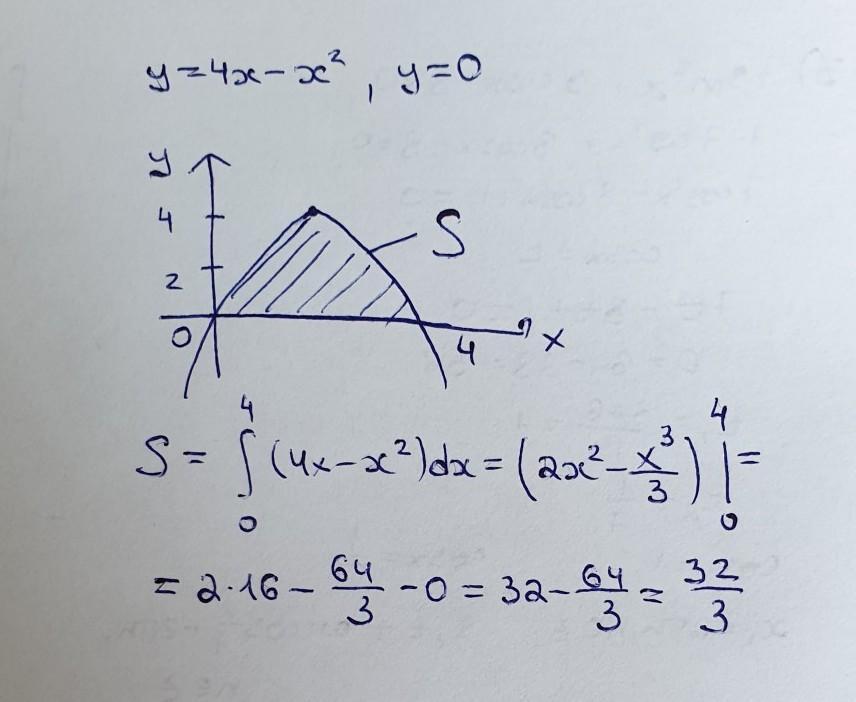 y=4x-x², y=0
y
4
S
2
0
4
x
S = ∫₀⁴ (4x-x²)dx = (2x² - x³/3) |₀⁴ =
= 2·16 - 64/3 - 0 = 32 - 64/3 = 32/3